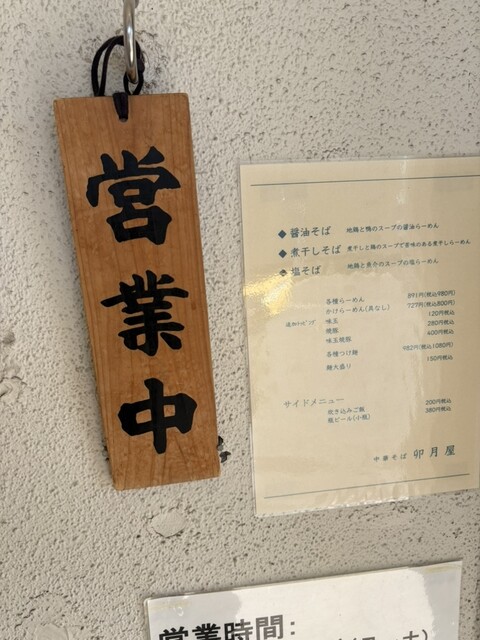 営業中
◆醤油そば 地鶏と鴨のスープの醤油らーめん
◆煮干しそば 煮干しと鶏のスープで苦味のある煮干しらーめん
◆塩そば 地鶏と魚介のスープの塩らーめん
各種らーめん 891円(税込980円)
かけらーめん(具なし) 727円(税込800円)
追加トッピング 味玉 120円税込
焼豚 280円税込
味玉焼豚 400円税込
各種つけ麺 982円(税込1080円)
麺大盛り 150円税込
サイドメニュー
炊き込みご飯 200円税込
瓶ビール(小瓶) 380円税込
中華そば 卯月屋
営業時間: